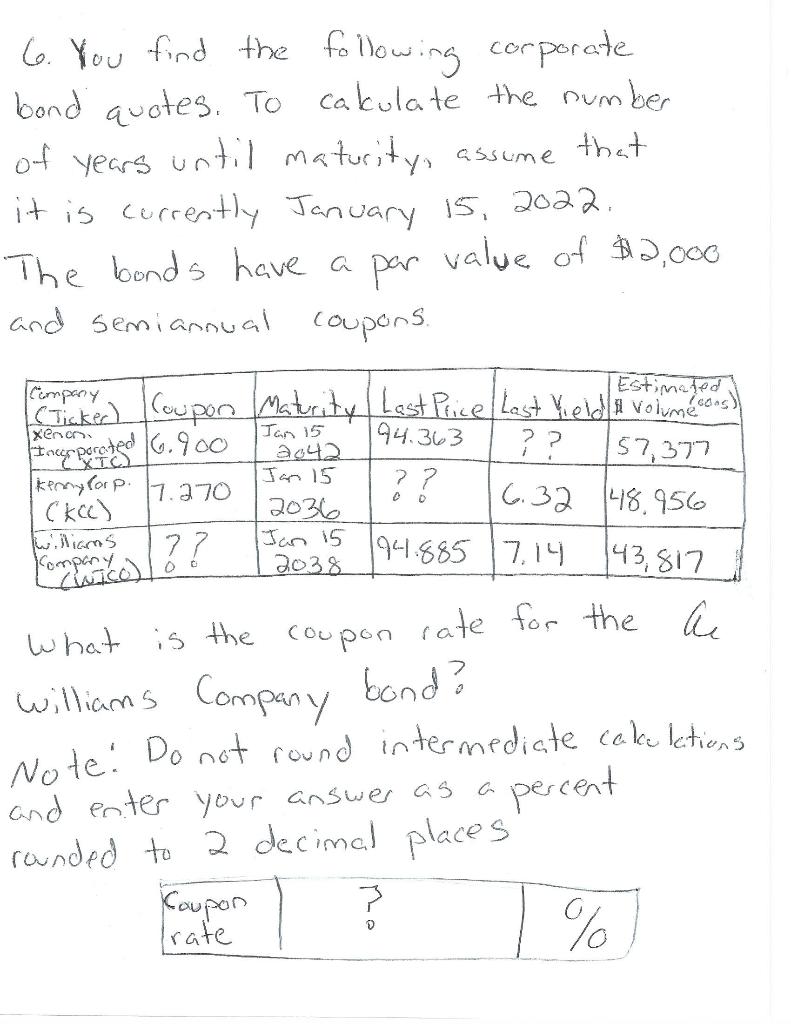 6. You find the following corporate
bond quotes. To calculate the number
of years until maturity, assume that
it is currently January 15, 2022.
The bonds have a par value of $2,000
and semiannual coupons.
Company (Ticker) Coupon Maturity Last Price Last Yield Estimated $ Volume (000s)
Xenon, Incorporated (XTC) 6.900 Jan 15 2042 94.363 ?? 57,377
Kenny Corp. (KCC) 7.270 Jan 15 2036 ?? 6.32 48,956
Williams Company (WICO) ?? Jan 15 2038 94.885 7.14 43,817
What is the coupon rate for the
Williams Company bond?
Note: Do not round intermediate calculations
and enter your answer as a percent
rounded to 2 decimal places
Coupon rate ? %